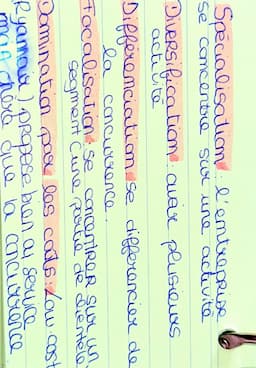 Spécialisation : l'entreprise
se concentre sur une activité
Diversification : avoir plusieurs
activité
Différenciation se différencier de
la concurrence
Focalisation : se concentrer sur un
segment (une partie de clientèle
Domination par les coûts : low cost
Ryanair) propose bien ou service
moins chère que la concurrence